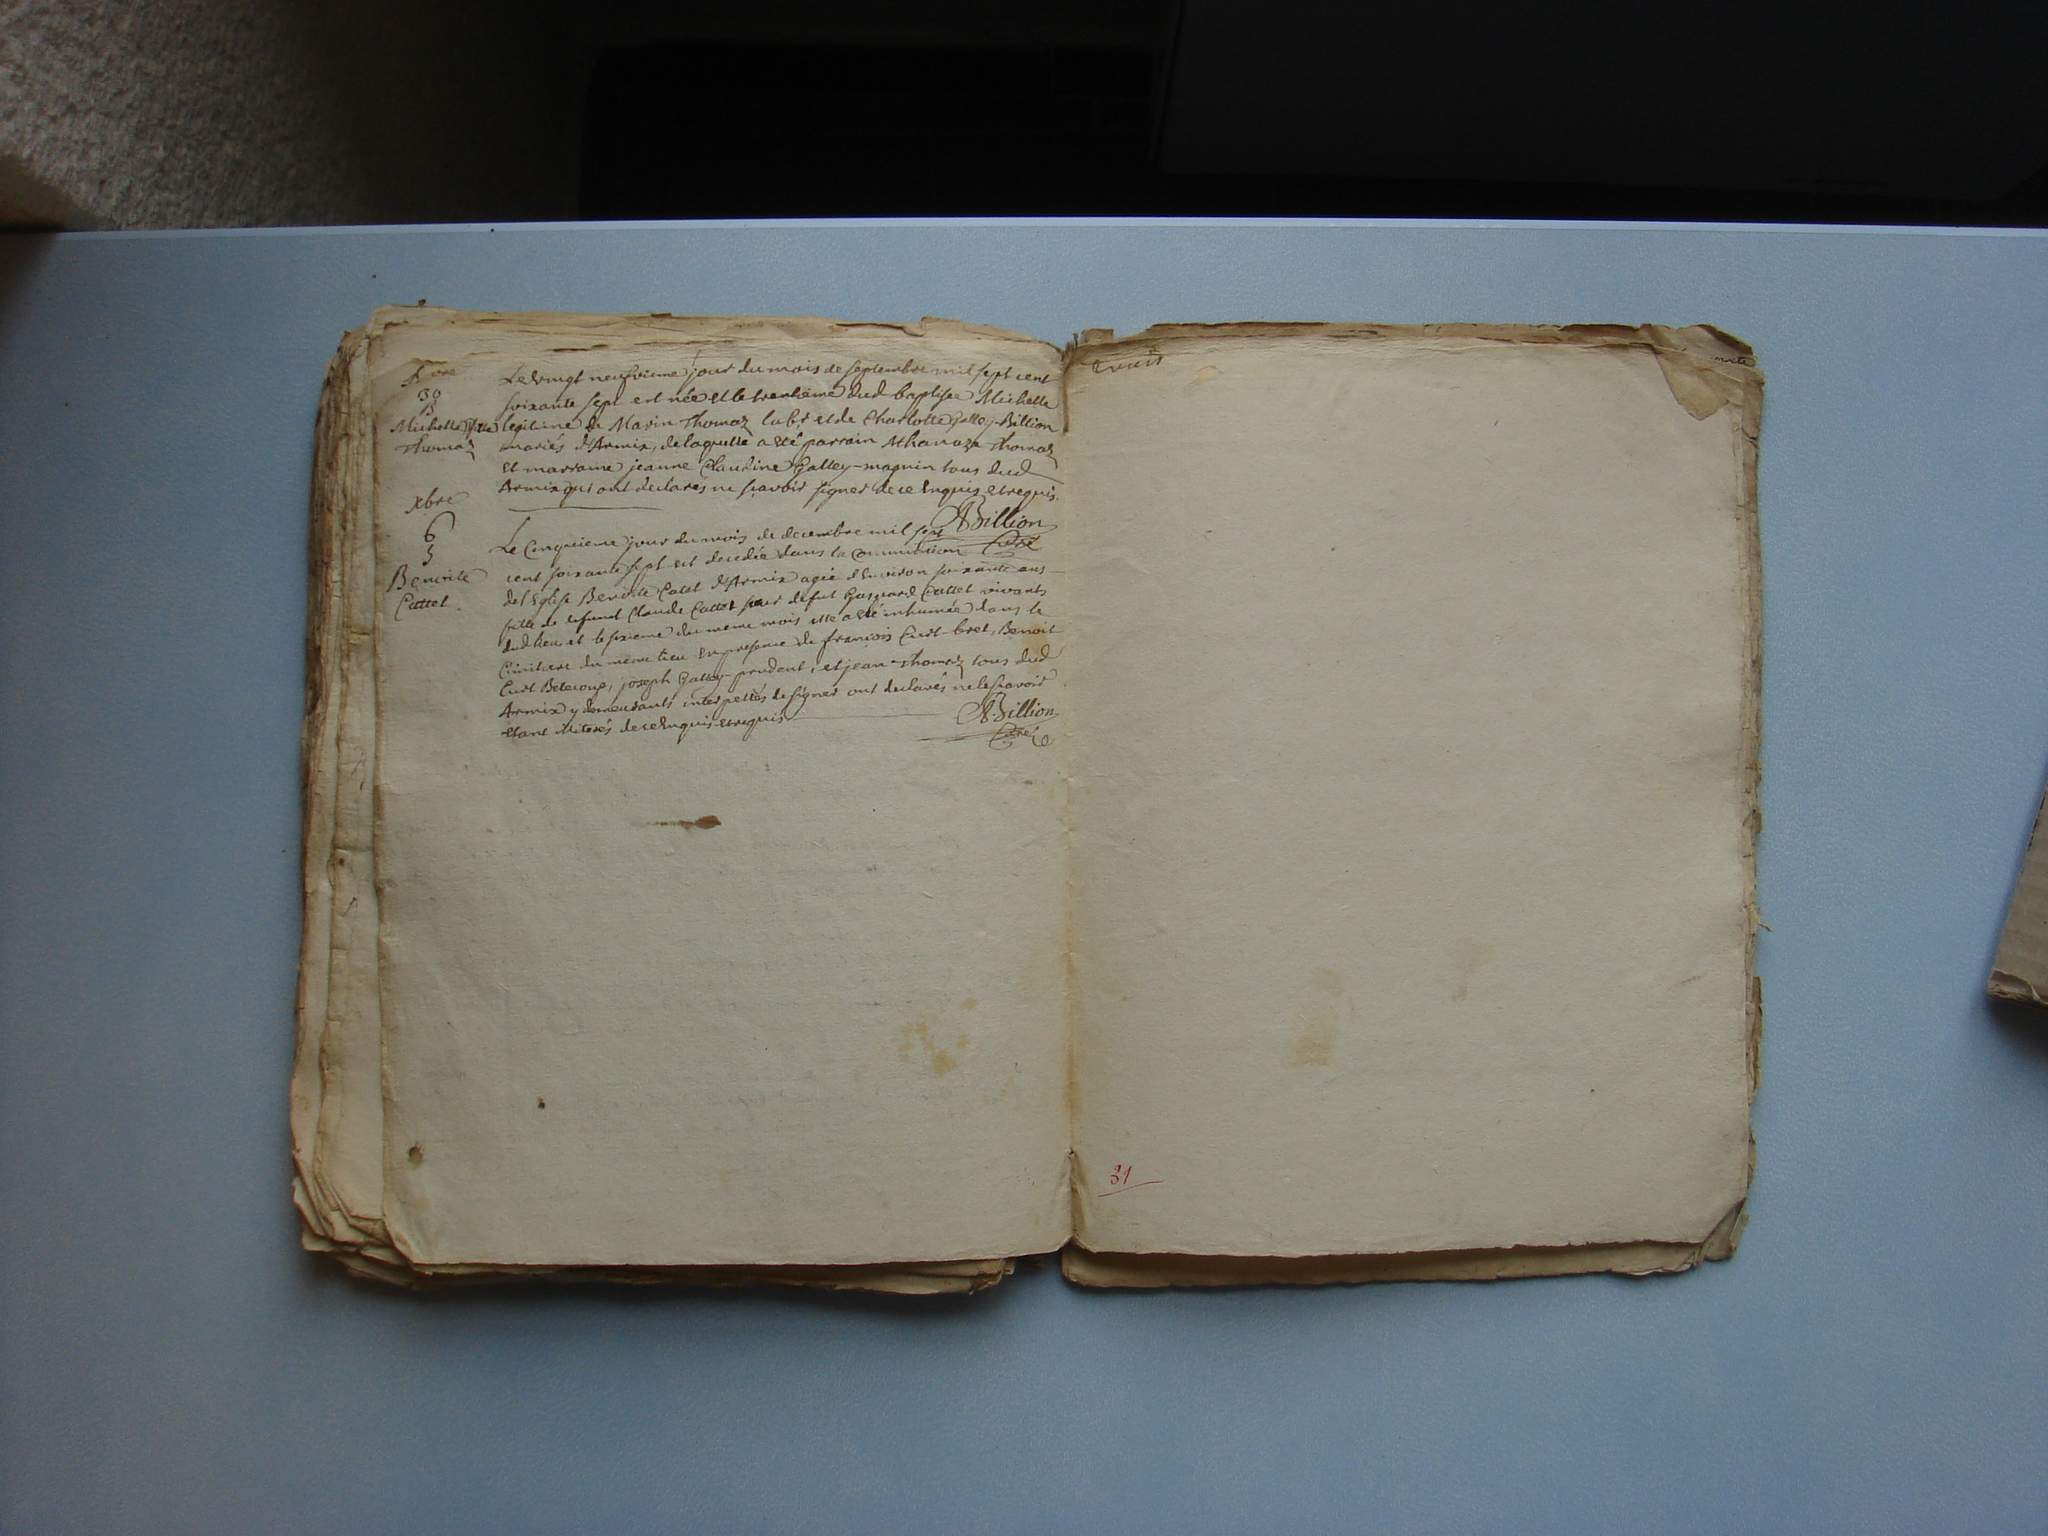 7bre
30
B
Michelle
Thomaz
Le vingt neufvieme jour du mois de septembre mil sept cent
soixante sept est née et le trentieme dud baptisée Michelle
fille legitime de Marin Thomaz labr et de Charlotte Galley-Billion
mariés d'Armix, de laquelle a été parrain Athanaze Thomaz
et marraine jeanne Claudine Galley-magnin tous dud
Armix qui ont declarés ne sçavoir signer de ce Enquis et requis.
ABillion
Curé
xbre
6
S
Benoite
Cattet
Le Cinquieme jour du mois de decembre mil sept
cent soixante sept est decedée dans la Communion
de l'Eglise Benoite Catet d'Armix agée d'Environ soixante ans
fille de defunt Claude Cattet sœur de fut Gaspard Cattet vivants
dud lieu et le sixieme du meme mois elle a été inhumée dans le
Cimitiere du meme lieu En presence de françois Curt-bret, Benoit
Curt Beteroup, joseph Galley-prudent, et jean Thomaz tous dud
Armix y demeurants interpellés de signer ont declarés ne le sçavoir
etant illiterés de ce Enquis et requis
ABillion
Curé
31